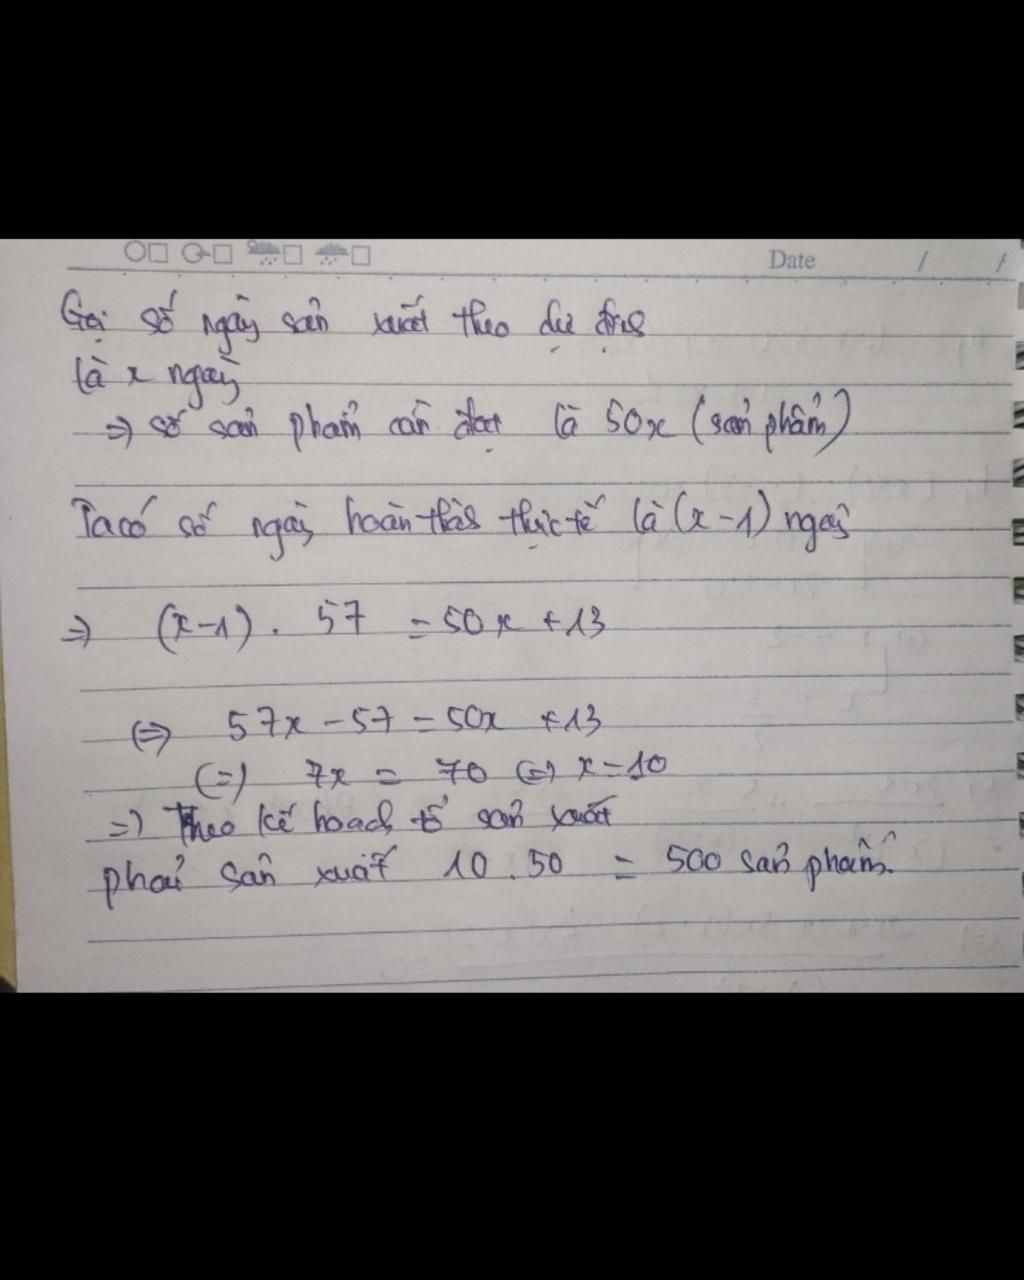 Date / /
Gọi số ngày sản xuất theo dự định
là x ngày
=> số sản phẩm cần đạt là 50x (sản phẩm)
Ta có số ngày hoàn thành thực tế là (x-1) ngày
=> (x-1). 57 = 50x +13
(=) 57x - 57 = 50x +13
(=) 7x = 70 (=) x = 10
=) Theo kế hoạch tổ sản xuất
phải sản xuất 10 . 50 = 500 sản phẩm.